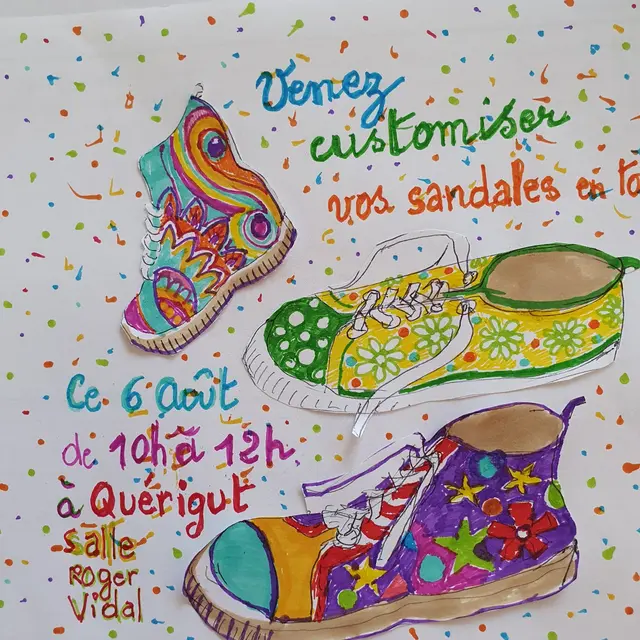 Venez
customiser
vos sandales en to
Ce 6 Août
de 10h à 12h
à Quérigut
Salle
Roger
Vidal